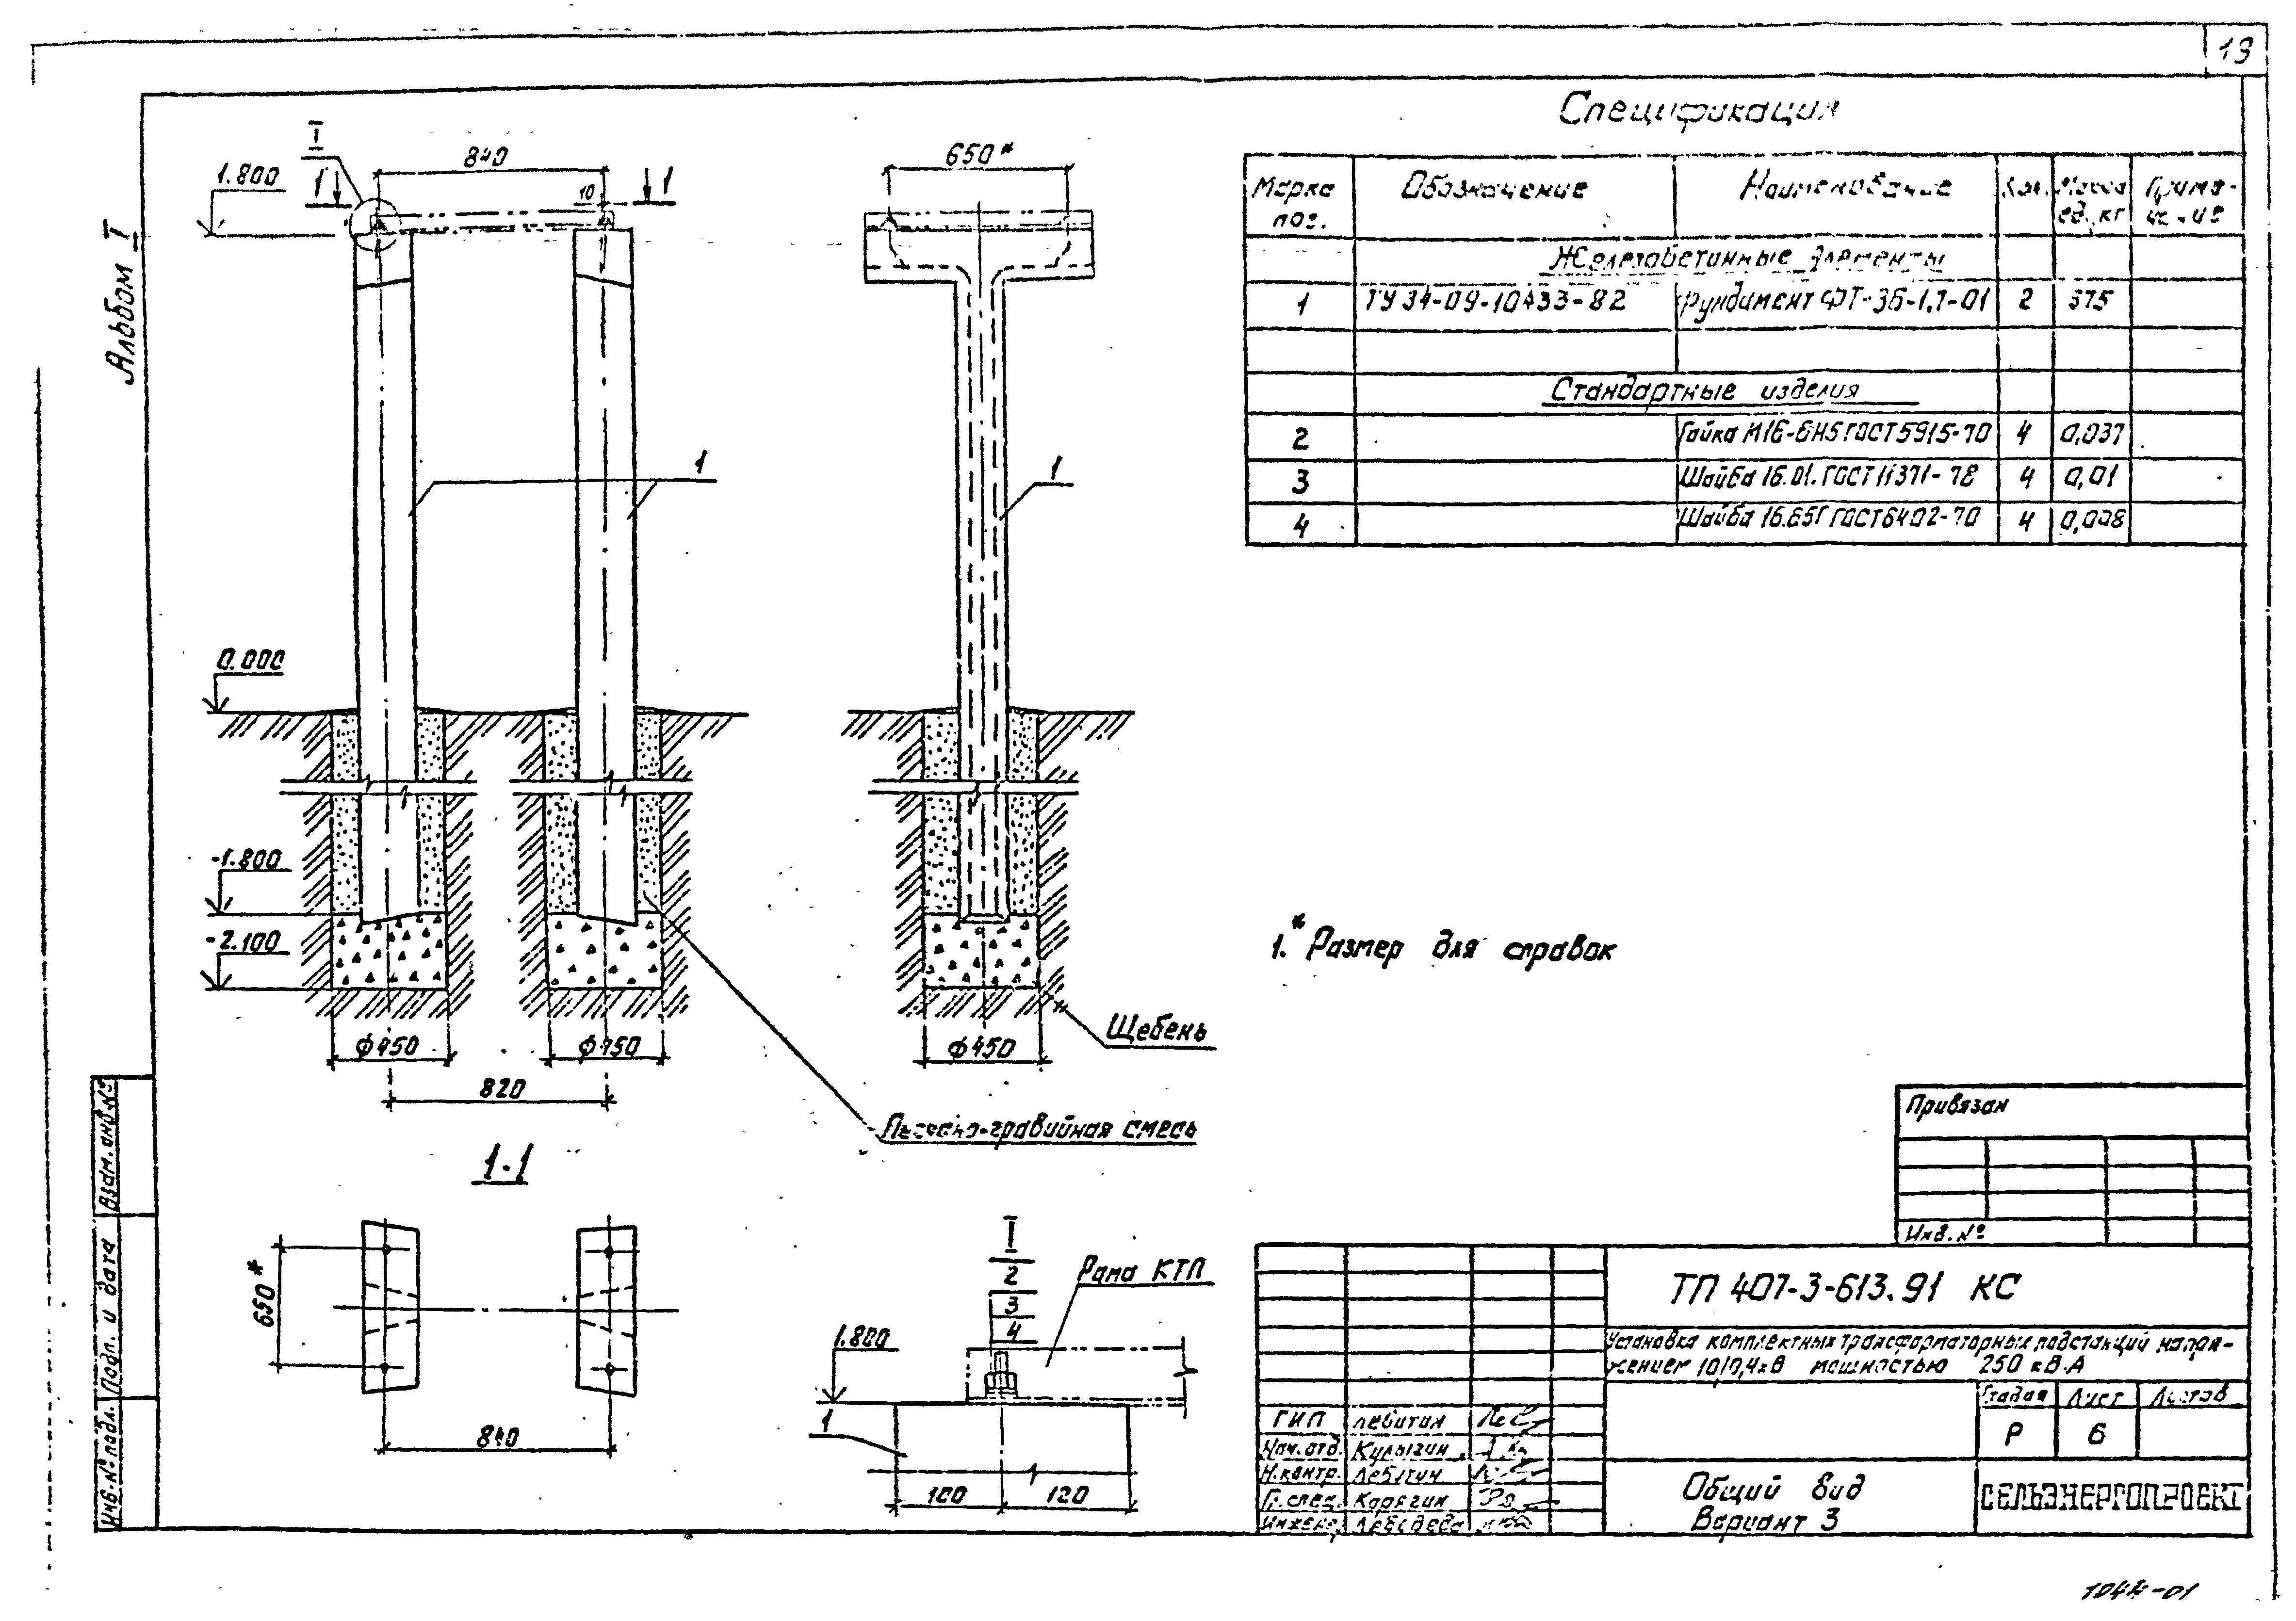 19
Альбом I
Спецификация
Марка поз. Обозначение Наименование Кол. Масса ед. кг Примечание
Железобетонные элементы
1 ТУ 34-09-10433-82 Фундамент 2 375
Стандартные изделия
2 Гайка М16-6Н5 ГОСТ 5915-70 4 0,037
3 Шайба 16.01. ГОСТ 11371-78 4 0,01
4 Шайба 16.65Г ГОСТ 6402-70 4 0,008
I
1.800
1
840
10
1
650*
1
1
0.000
-1.800
-2.100
ф450
ф450
ф450
820
Щебень
Песчано-гравийная смесь
1. * Размер для справок
1-1
650*
840
I
2
3
4
Рама КТП
1.800
1
100
120
Привязан
Инв. №
ТП 407-3-613.91 КС
Установка комплектных трансформаторных подстанций напря-
жением 10/0,4 кВ мощностью 250 кВ.А
Стадия Лист Листов
Р 6
ГИП Левитин
Нач. отд. Кулыгин
Н. контр. Левитин
Гл. спец. Карягин
Инженер Лебедева
Общий вид
Вариант 3
СЕЛЬЭНЕРГОПРОЕКТ
Взам. инв. №
Подп. и дата
Инв. № подл.
1044-01